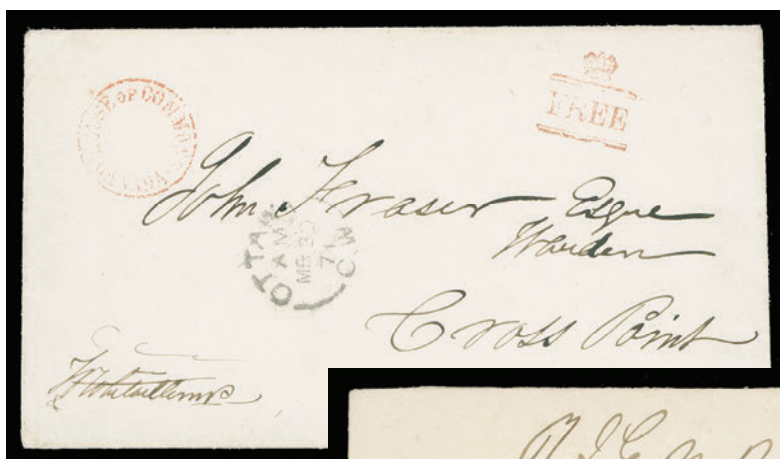 HOUSE OF COMMONS CANADA
FREE
John Fraser Esqre
Warden
OTTAWA C.W
AM
MR 30
71
Cross Point